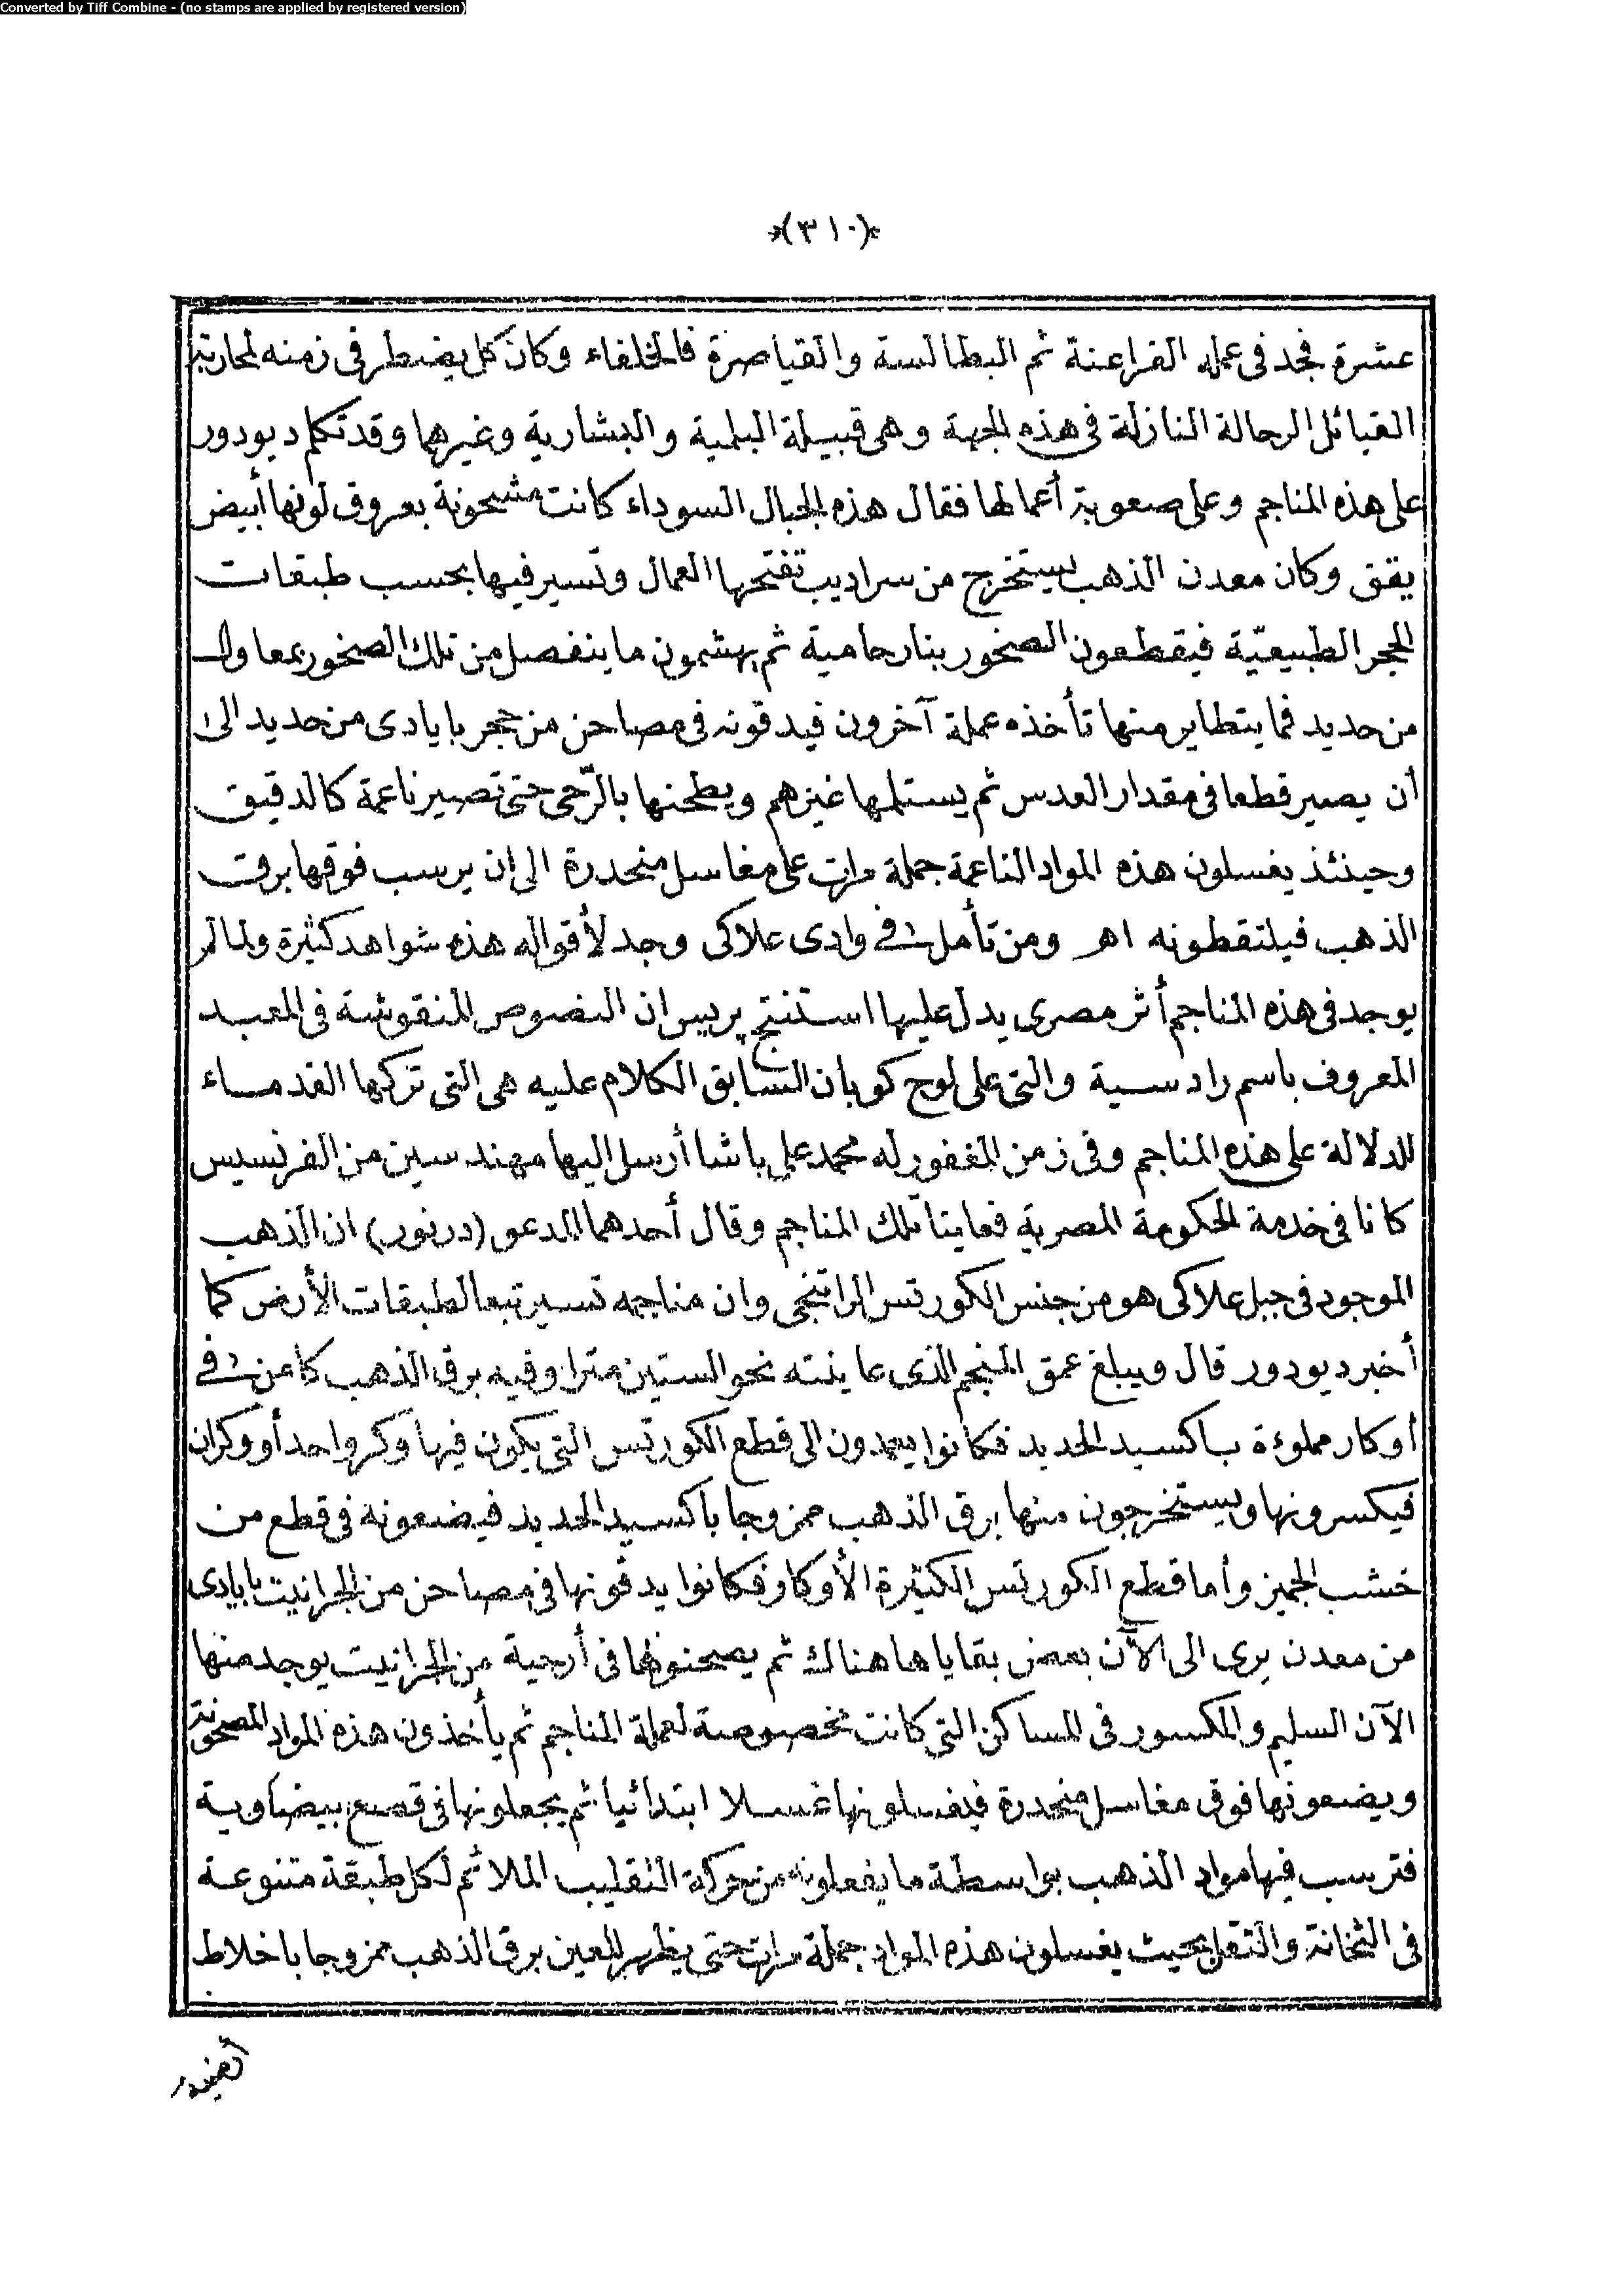 Converted by Tiff Combine - (no stamps are applied by registered version)
*(٣١٠)*
عشرة فجد فى عمله الفراعنة ثم البطالسة والقياصرة فالخلفاء وكان كل يضطر فى زمنه لمحاربة
القبائل الرحالة النازلة فى هذه الجهة وهى قبيلة البلمية والبشارية وغيرها وقد تكلم ديودور
على هذه المناجم وعلى صعوبة أعمالها فقال هذه الجبال السوداء كانت مشحونة بعروق لونها أبيض
يقق وكان معدن الذهب يستخرج من سراديب تفتحها العمال وتسير فيها بحسب طبقات
الحجر الطبيعيّة فيقطعون الصخور بنار حامية ثم يهشمون ما ينفصل من تلك الصخور بمعاول
من حديد فما يتطاير منها تأخذه عملة آخرون فيدقونه فى مصاحن من حجر بايادى من حديد الى
أن يصير قطعا فى مقدار العدس ثم يستلمها غيرهم ويطحنها بالرّحى حتى تصير ناعمة كالدقيق
وحينئذ يغسلون هذه المواد الناعمة جملة مرات على مغاسل منحدرة الى ان يرسب فوقها برق
الذهب فيلتقطونه اهـ ومن تأمل فى وادى علاكى وجد لأقواله هذه شواهد كثيرة ولما لم
يوجد فى هذه المناجم أثر مصرى يدل عليها استنتج بريس ان النصوص المنقوشة فى المعبد
المعروف باسم رادسية والتى على لوح كوبان السابق الكلام عليه هى التى تركها القدماء
للدلالة على هذه المناجم وفى زمن المغفور له محمد على باشا أرسل اليها مهندسين من الفرنسيس
كانا فى خدمة الحكومة المصرية فعاينا تلك المناجم وقال أحدهما المدعو (درنور) ان الذهب
الموجود فى جبل علاكى هو من جنس الكورتس الراتنجى وان مناجمه تسير تبعا لطبقات الأرض كما
أخبر ديودور قال ويبلغ عمق المنجم الذى عاينته نحو الستين مترا وفيه برق الذهب كامن فى
أوكار مملوءة باكسيد الحديد فكانوا يعمدون الى قطع الكورتس التى يكون فيها وكر واحد أو وكران
فيكسرونها ويستخرجون منها برق الذهب ممزوجا باكسيد الحديد فيضعونه فى قطع من
خشب الجميز وأما قطع الكورتس الكثيرة الأوكار فكانوا يدقونها فى مصاحن من الجرانيت بايادى
من معدن يرى الى الآن بعض بقاياها هناك ثم يصحنوها فى أرحية من الجرانيت يوجد منها
الآن السليم والمكسور فى المساكن التى كانت مخصوصة لعملة المناجم ثم يأخذون هذه المواد المصحونة
ويضعونها فوق مغاسل منحدرة فيغسلونها غسلا ابتدائيا ثم يجعلونها فى قصع بيضاوية
فترسب فيها مواد الذهب بواسطة ما يفعلونه من حركة التقليب الملائم لكل طبقة متنوعة
فى الثخانة والثقل بحيث يغسلون هذه المواد جملة مرات حتى يظهر للعين برق الذهب ممزوجا باخلاط